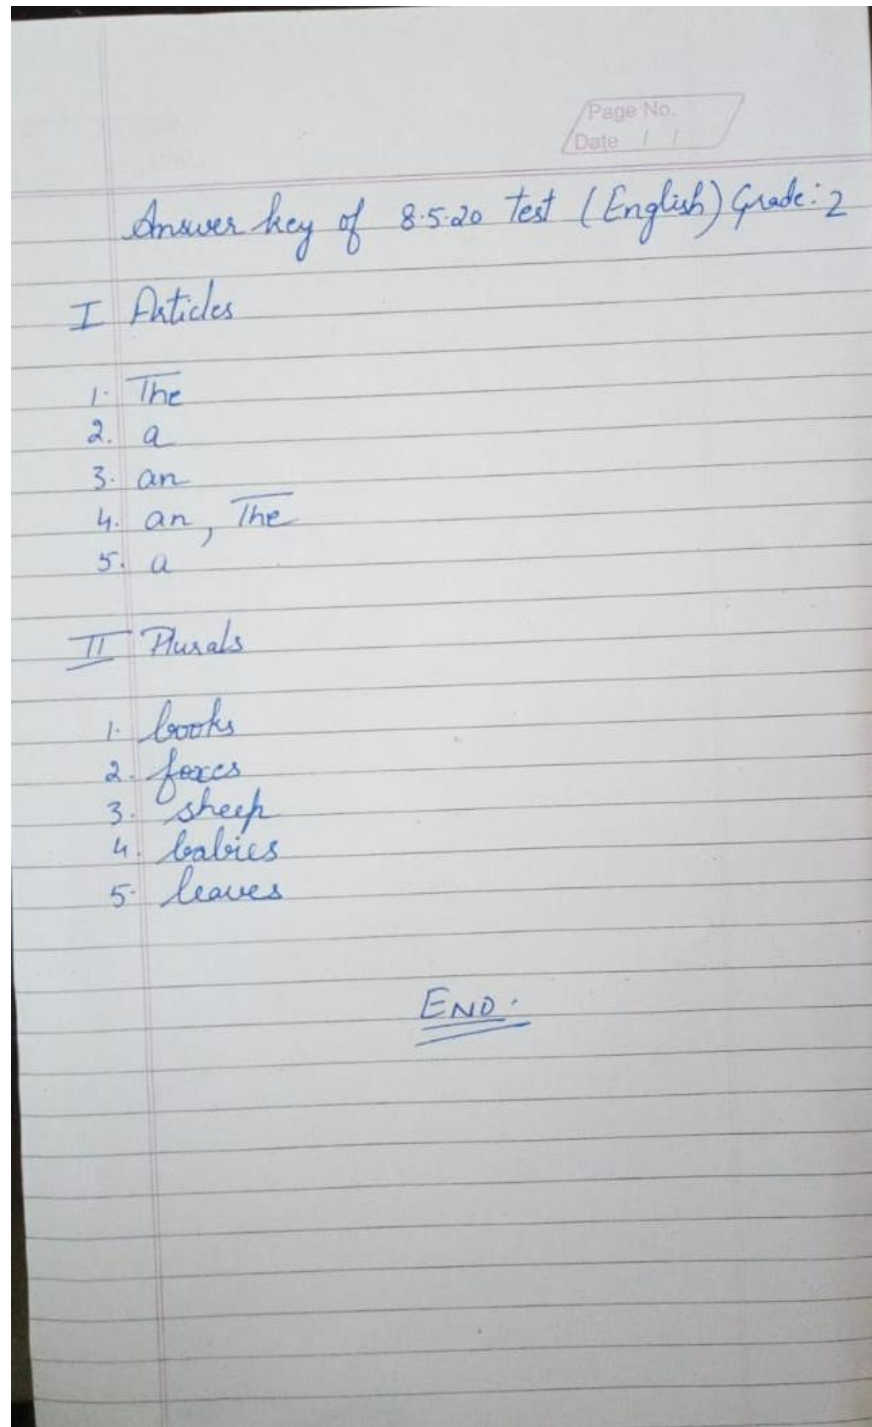 Page No.
Date / /
Answer key of 8.5.20 test (English) Grade: 2
I Articles
1. The
2. a
3. an
4. an, The
5. a
II Plurals
1. books
2. foxes
3. sheep
4. babies
5. leaves
END.